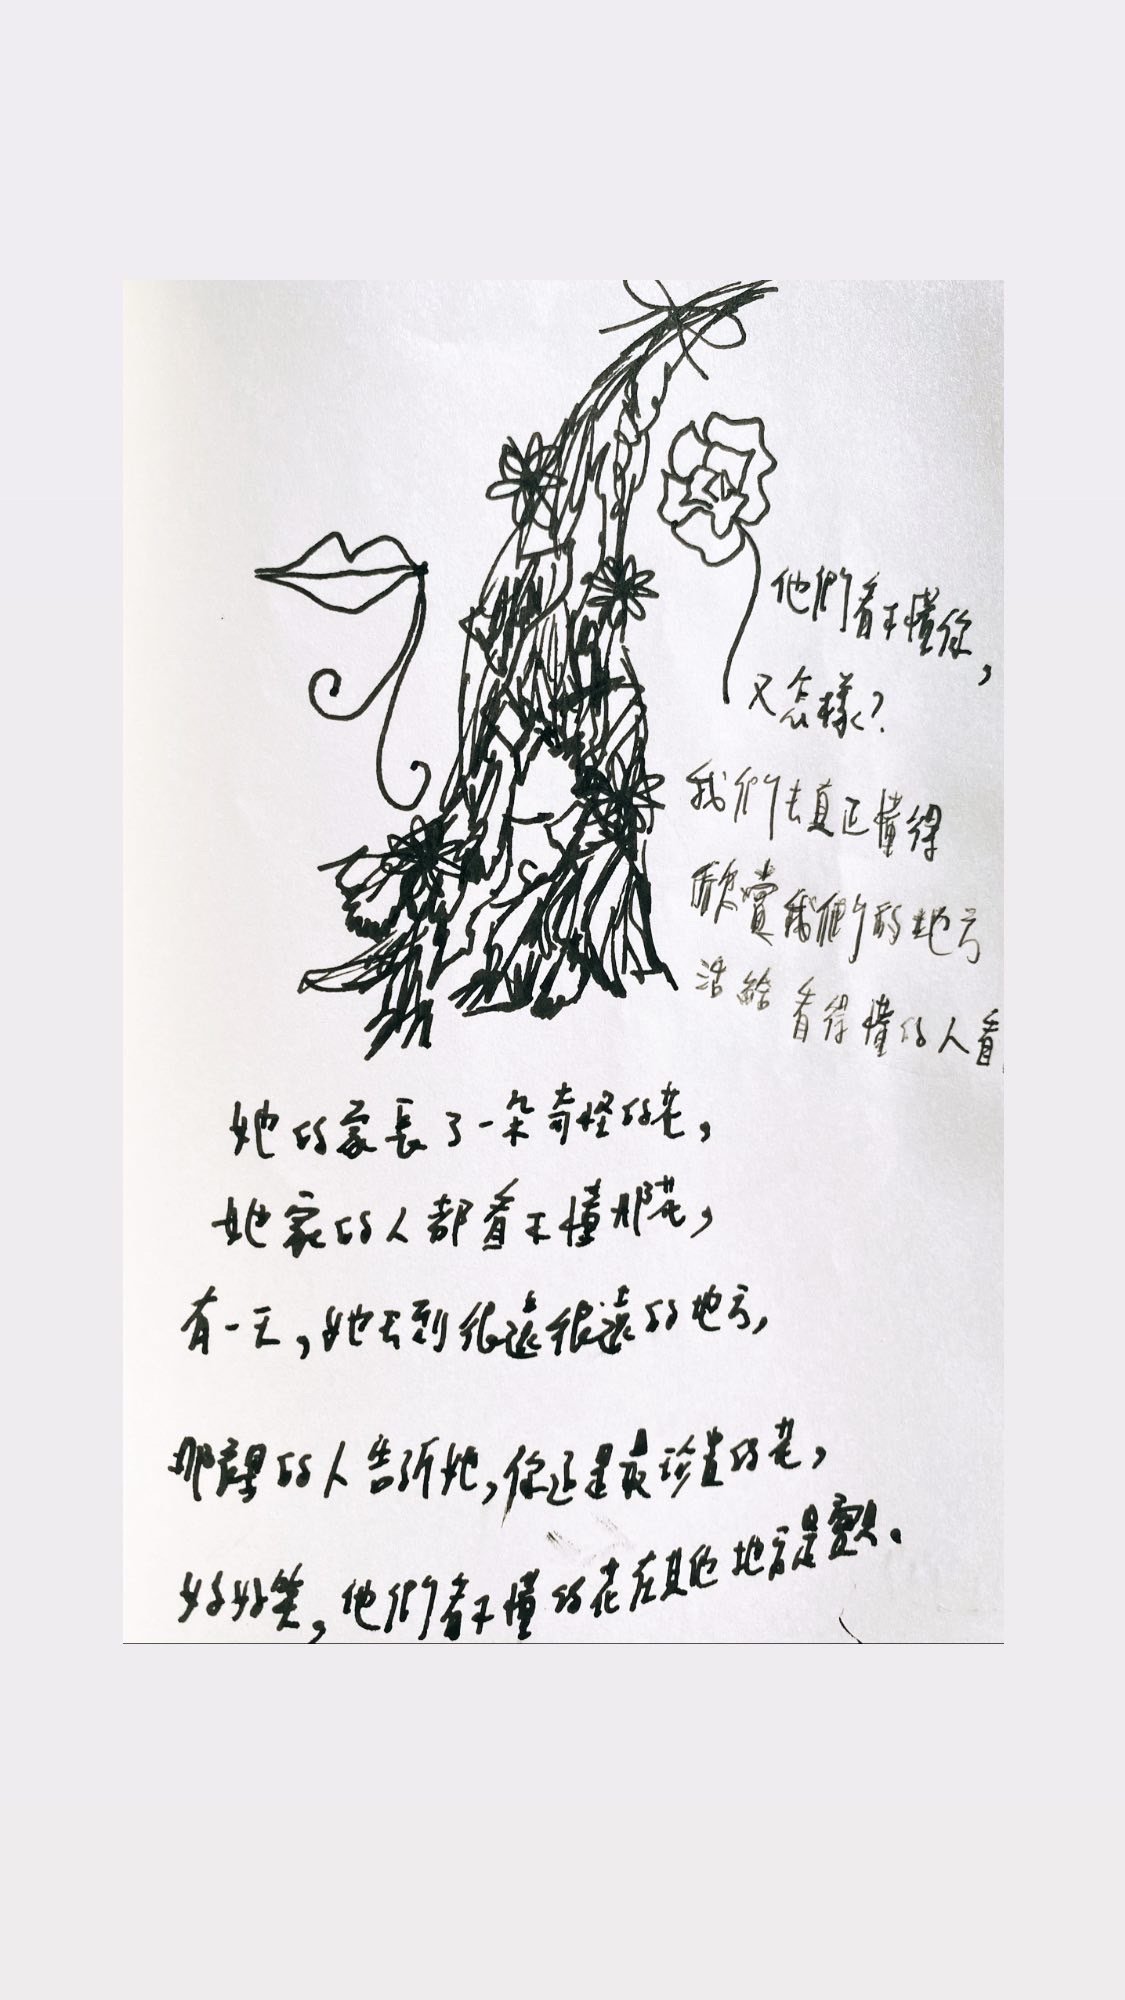 他們看不懂你，
又怎樣？
我們去真正懂得
欣賞我們的地方
活給看得懂的人看
她的家長了一朵奇怪的花，
她家的人都看不懂那花，
有一天，她去到很遠很遠的地方，
那裡的人告訴她，你這是最珍貴的花，
好好笑，他們看不懂的花在其他地方是寶貝。